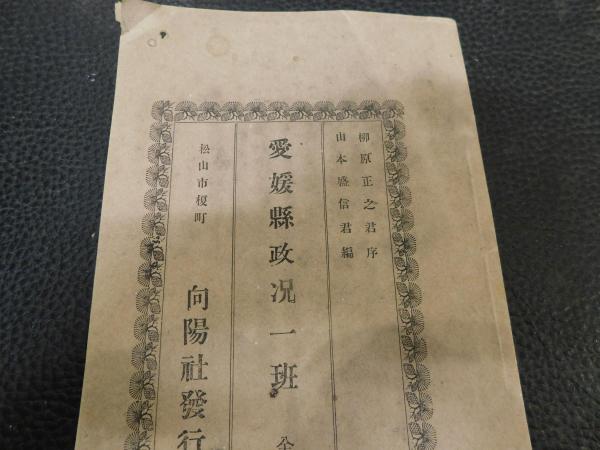 柳原正之君序
山本盛信君編
愛媛縣政况一班 全
松山市榎町
向陽社發行